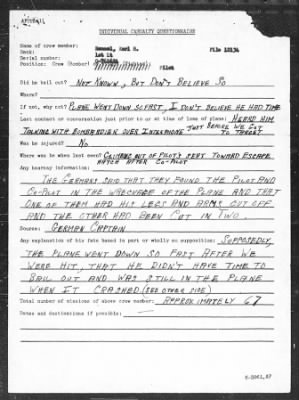 INDIVIDUAL CASUALTY QUESTIONNAIRE
Name of crew member: Hommel, Karl H. File 12134
Rank: 1st Lt
Serial number:
Position: Crew (Bomber) Pilot
Did he bail out? NOT KNOWN, BUT DON'T BELIEVE SO
Where?
If not, why not? PLANE WENT DOWN SO FAST, I DON'T BELIEVE HE HAD TIME
Last contact or conversation just prior to or at time of loss of plane: HEARD HIM
TALKING WITH BOMBARDIER OVER INTERPHONE JUST BEFORE WE GOT TO TARGET
Was he injured? NO
Where was he when last seen? CLIMBING OUT OF PILOT'S SEAT TOWARD ESCAPE
HATCH AFTER CO-PILOT
Any hearsay information:
THE GERMANS SAID THAT THEY FOUND THE PILOT AND
CO-PILOT IN THE WRECKAGE OF THE PLANE AND THAT
ONE OF THEM HAD HIS LEGS AND ARMS CUT OFF
AND THE OTHER HAD BEEN CUT IN TWO.
Source: GERMAN CAPTAIN
Any explanation of his fate based in part or wholly on supposition: SUPPOSEDLY
THE PLANE WENT DOWN SO FAST AFTER WE
WERE HIT, THAT HE DIDN'T HAVE TIME TO
BAIL OUT AND WAS STILL IN THE PLANE
WHEN IT CRASHED (SEE OTHER SIDE)
Total number of missions of above crew member: APPROXIMATELY 67
Dates and destinations if possible: —